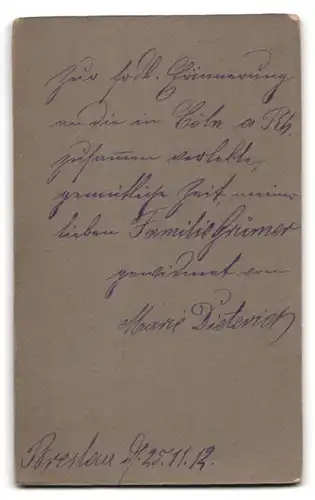 Zur frdl. Erinnerung
an die in Cöln a Rh.
zusammen verlebte,
gemütliche Zeit, meiner
lieben Familie Grümer
gewidmet von
Marie Dieterich
Breslau d. 25.11.12.